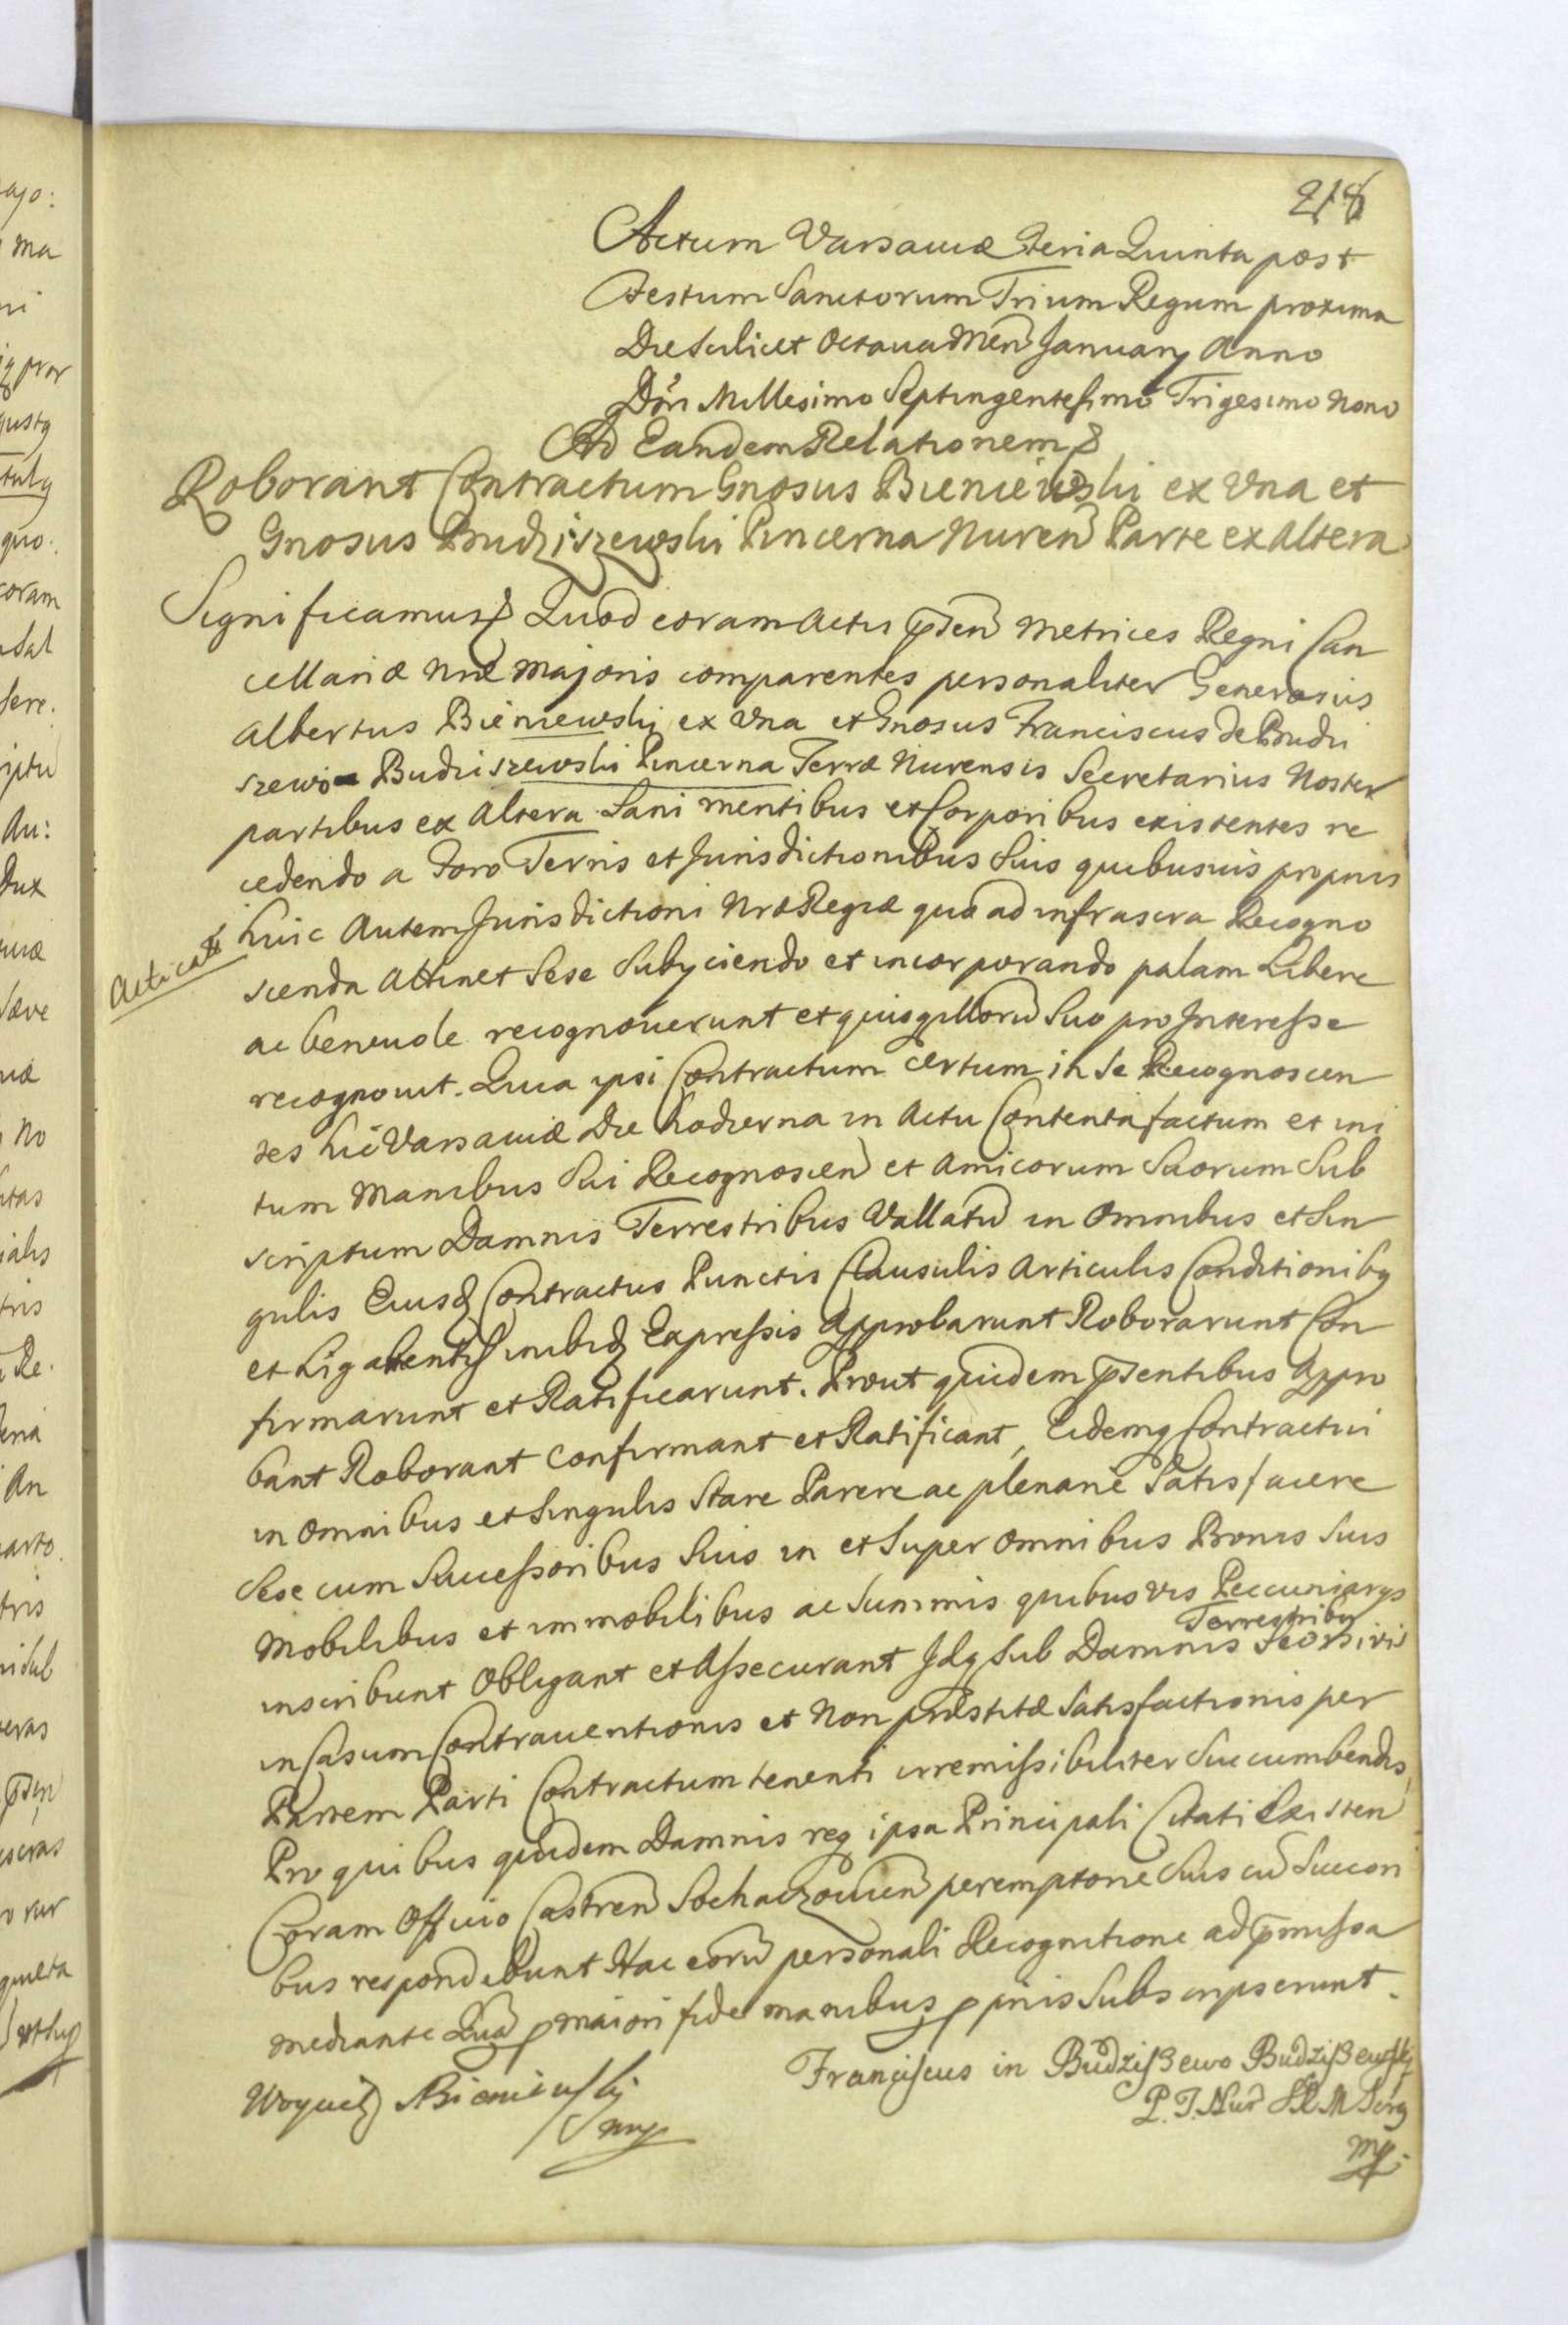 218
Actum Varsaviæ Feria Quinta post
Festum Sanctorum Trium Regum proxima
Die Scilicet Octava Men January Anno
Dńi Millesimo Septingentesimo Trigesimo Nono
Ad Eandem Relationem
Roborant Contractum Gnosus Bieniewski ex Vna et
Gnosus Budziszewski Pincerna Nuren Parte ex Altera
Significamus Quod coram Actis pñten Metrices Regni Can
cellariæ Nræ Majoris comparentes personaliter Generosius
Albertus Bieniewski ex Vna et Gnosus Franciscus de Budzi
szewo Budziszewski Pincerna Terræ Nurensis Secretarius Noster
partibus ex Altera Sani mentibus et Corporibus existentes re
cedendo a Foro Terris et Jurisdictionibus Suis quibusvis proprijs
huic Autem Jurisdictioni Nræ Regiæ quo ad infrascra Recogno
scenda Attinet Sese Subyciendo et incorporando palam Libere
ac benevole recognoverunt et quisq illorũ Suo pro Interesse
recognovit. Quia ipsi Contractum certum in Se Recognoscen
tes hic Varsaviæ Die hodierna in Actu Contenta factum et ini
tum Manibus Sui Recognoscen et Amicorum Suorum Sub
scriptum Damnis Terrestribus Vallatũ in Omnibus et Sin
gulis Eiusd Contractus Punctis Clausulis Articulis Conditionibq
et Ligamentis inibiq Expressis Approbarunt Roborarunt Con
firmarunt et Ratificarunt. Prout quidem pñtentibus Appro
bant Roborant Confirmant et Ratificant, Eidemq Contractui
in Omnibus et Singulis Stare Parere ac plenarie Satisfacere
Sese cum Successoribus Suis in et Super Omnibus Bonis Suis
Mobilibus et immobilibus ac Summis quibusvis Peccuniarys
Terrestribus
inscribunt Obligant et Assecurant Idq Sub Damnis Seorsivis
in Casum Contraventionis et Non præstitæ Satisfactionis per
Partem Parti Contractum tenenti irremissibiliter Succumbendis
Pro quibus quidem Damnis req ipsa Principali Citati Existen
Coram Officio Castren Sochaczovien peremptorie Suis cũ Succori
bus respondebunt Hac eorũ personali Recognitione ad præmissa
mediante Quã p maiori fide manibus ppriis Subscripserunt.
Acticat
Woyciech Bieniewski
mp
Franciscus in Budziszewo Budziszewski
P. T. Nur S R M Scrg
mp.